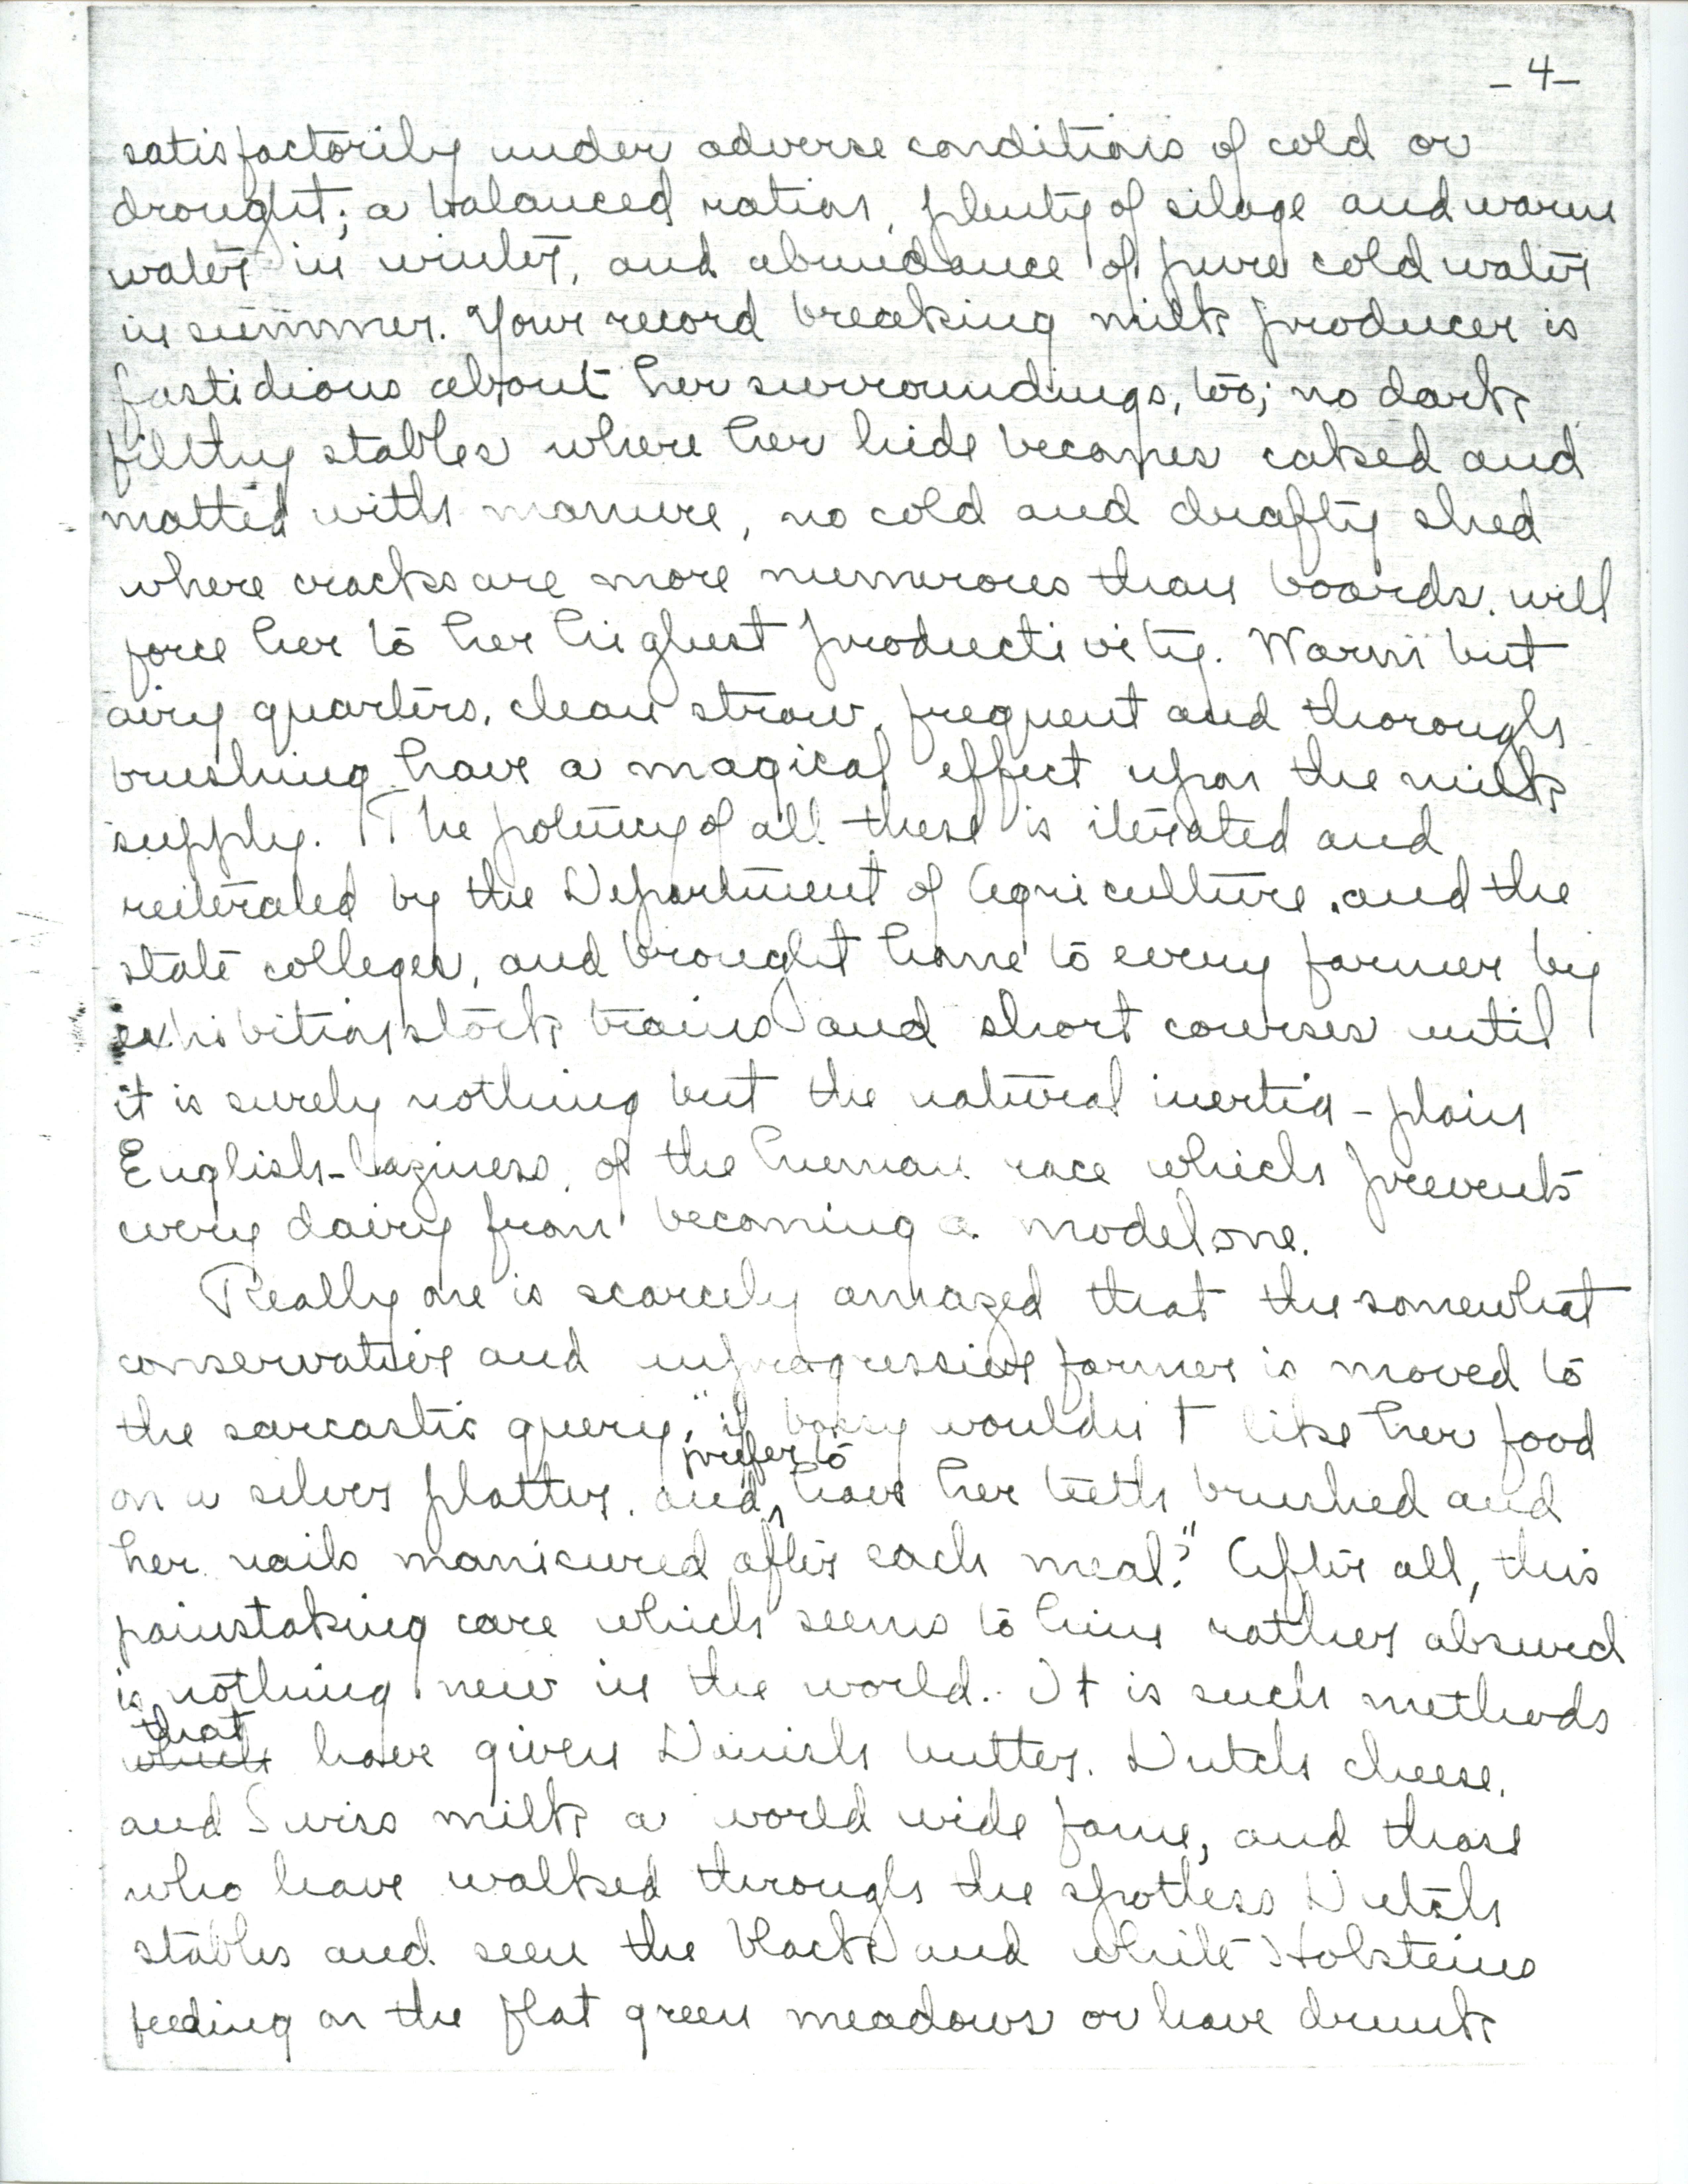 - 4 -
satisfactorily under adverse conditions of cold or
drought; a balanced ration, plenty of silage and warm
water in winter, and abundance of pure cold water
in summer. Your record breaking milk producer is
fastidious about her surroundings, too; no dark,
filthy stables where her hide becomes caked and
matted with manure, no cold and drafty shed
where cracks are more numerous than boards, will
force her to her highest productivity. Warm but
airy quarters, clean straw, frequent and thorough
brushing have a magical effect upon the milk
supply. The potency of all these is iterated and
reiterated by the Department of Agriculture, and the
state colleges, and brought home to every farmer by
exhibition stock trains and short courses until
it is surely nothing but the natural inertia - plain
English - laziness, of the human race which prevents
every dairy from becoming a model one.
Really one is scarcely amazed that the somewhat
conservative and unprogressive farmer is moved to
the sarcastic query, "if bossy wouldn't like her food
prefer to
on a silver platter, and have her teeth brushed and
her nails manicured after each meal?" After all, this
painstaking care which seems to him rather absurd
is nothing new in the world. It is such methods
that
which have given Danish butter, Dutch cheese,
and Swiss milk a world wide fame, and those
who have walked through the spotless Dutch
stables and seen the black and white Holsteins
feeding on the flat green meadows or have drunk